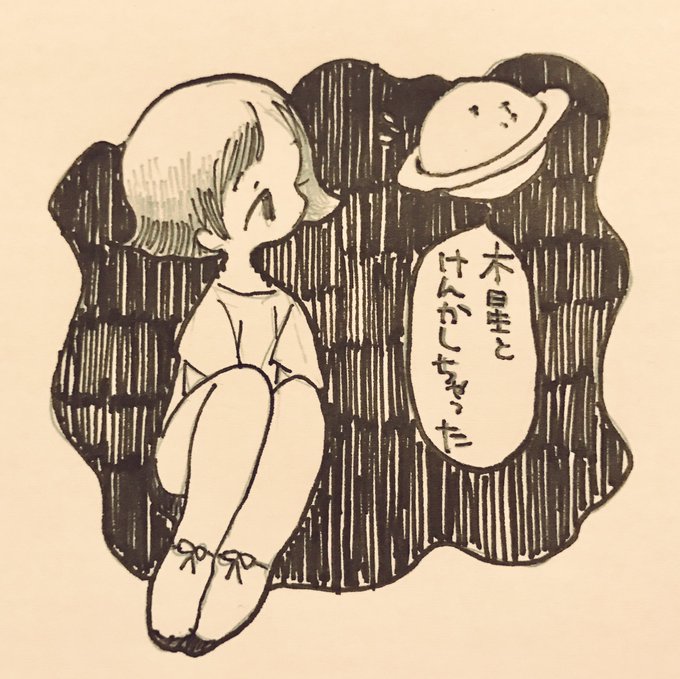 木星と
けんかしちゃった